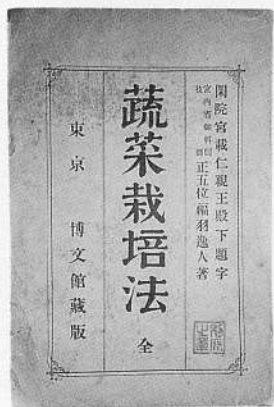 閑院宮載仁親王殿下題字
宮內省御料局技師 正五位 福羽逸人著
蔬菜栽培法 全
東京 博文館藏版